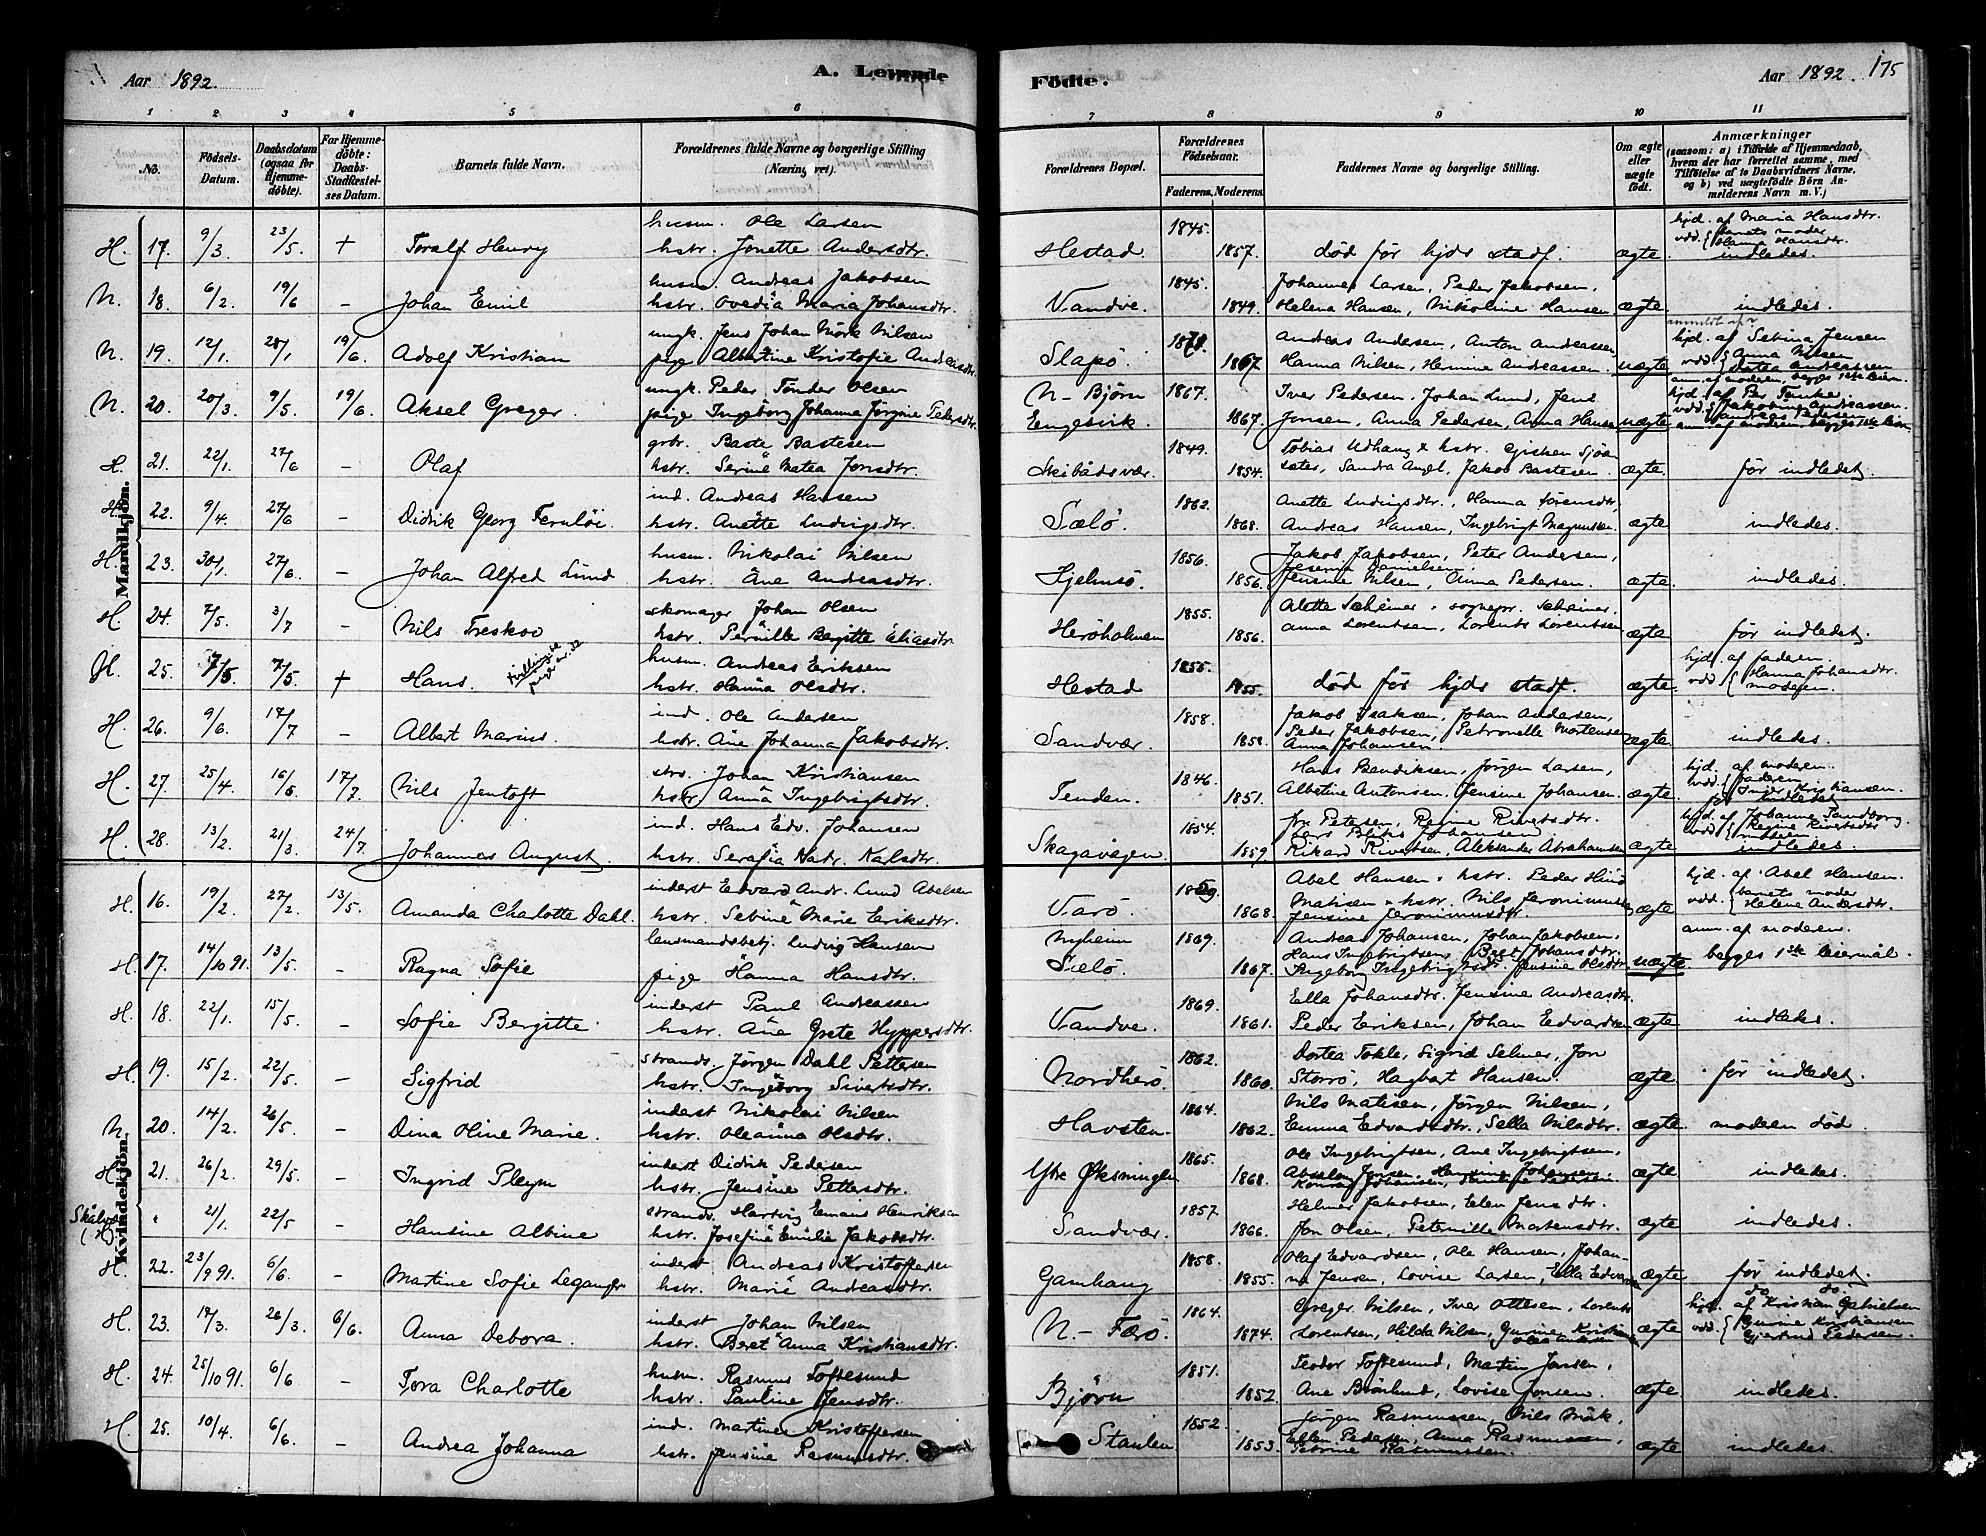 Aar 1892. A. Levende Födte. Aar 1892. 175
1 2 3 4 5 6 7 8 9 10 11
No. Födsels-Datum. Daabsdatum (ogsaa for Hjemme-döbte). For Hjemme-döbte: Daabs-Stadfæstel-ses Datum. Barnets fulde Navn. Forældrenes fulde Navne og borgerlige Stilling (Næring, vei). Forældrenes Bopæl. Forældrenes Födselsaar. Faderens. Moderens. Faddernes Navne og borgerlige Stilling. Om ægte eller uægte födt. Anmærkninger (saasom: a) i Tilfælde af Hjemmedaab, hvem der har forrettet samme, med Tilföielse af to Daabsvidners Navne, og b) ved uægtefödte Börn An-melderens Navn m. V.)
Mandkjön.
husm. Ole Larsen 1845. hjd. af Maria Hansdtr.
H. 17. 9/3 23/5 + Toralf Henry hstr. Jonette Andersdtr. Hestad 1857. död før hjds stadf. ægte vdd. { barnets moder Hanna Hansdtr. indledes.
husm. Andreas Jakobsen 1845. Johannes Larsen, Peder Jakobsen,
N. 18. 6/2 19/6 – Johan Emil hstr. Ovedia Maria Johansdtr. Vandve. 1849. Helena Hansen, Nikoline Hansen ægte indledes.
ungk. Jens Johan Mörk Nilsen Andreas Andersen, Anton Andreassen, hjd. af Sebina Jensen
N. 19. 12/1 28/1 19/6 Adolf Kristian pige Albertine Kristofie Andreasdtr. Slapö. 1867 Hanna Nilsen, Hermine Andreassen. uægte vdd { Anna Nilsen Dotea Andreassen
ungk. Peder Tönder Olsen N-Björn 1867. Iver Pedersen, Johan Lund, Jens
N. 20. 20/3 9/5 19/6 Aksel Greger. pige Ingeborg Johanna Jörgine Pedersdtr. Engesvik. 1867. Jonsen, Anna Pedersen, Anna Hansen uægte
gbr. Baste Bastesen 1849. Tobias Udhaug & hstr.
H. 21. 22/1 27/6 – Olaf hstr. Serine Matea Jonsdtr. Skibådsvær. 1854. Sandra Angel, Jakob Bastesen. ægte. før indledet
ind. Andreas Hansen 1862. Anette Ludvigsdtr., Hanna Sörensdtr.
H. 22. 9/4. 27/6 – Didrik Georg hstr. Anette Ludvigsdtr. Sælö. 1868. Andreas Hansen, Ingebrigt Magnussen. ægte indledes.
husm. Nikolai Nilsen 1856. Jakob Jakobsen, Peter Andersen,
H. 23. 30/1. 27/6 – Johan Alfred Lund hstr. Ane Andreasdtr. Hjelmsö. 1856. Jensine Nilsen, Anna Pedersen. ægte indledes.
skomager Johan Olsen 1855. Alette Scheiner & sognepr. Scheiner.
H. 24. 7/5. 3/7 – Nils Treskov hstr. Pernille Bergitte Eliasdtr. Heröholmen 1856. Anna Lorentsen, Lorents Lorentsen ægte før indledet.
husm. Andreas Eriksen 1855. hjd. af faderen.
H. 25. 7/5 7/5. + Hans. hstr. Hanna Olsdtr. Hestad 1855. död før hjds stadf. ægte. vdd { Hanna Johansdtr. moderen.
ind. Ole Andersen 1858. Jakob Isaksen, Johan Andersen,
H. 26. 9/6. 17/7 – Albert Marius. hstr. Ane Johanna Jakobsdtr. Sandvær. 1858. Peder Jakobsen, Petronelle Mortensen Anna Johansen. ægte. indledes.
strs. Johan Kristiansen 1846. Hans Bendiksen, Jörgen Larsen, hjd. af moderen.
H. 27. 25/4. 16/5 17/7. Nils Jentoft hstr. Anna Ingebrigtsdtr. Tenden. 1851. Albertine Antonsen, Jensine Johansen. ægte vdd { faderen Inger Kristiansen. før indledet
ind. Hans Edv. Johansen 1854. fru Petersen, Regine Rivertsdtr. hjd. af Johanna Sandberg
H. 28. 13/2. 21/3 24/7. Johannes August hstr. Serafia Natr. Kalsdtr. Skagavågen. 1859. Rikard Rivertsen, Aleksander Abrahamsen ægte vdd { Regine Rivertsdtr moderen indledes.
Kvindekjön.
inderst Edvard Andr. Lund Abelsen Abel Hansen & hstr. Peder Hind hjd. af Abel Hansen.
H. 16. 19/2 27/2. 13/5. Amanda Charlotte Dahl. hstr. Sebine Marie Eriksdtr. Varö. 1868. Matisen & hstr. Nils Jeronimussen, Jensine Jeronimusdtr. ægte vdd. { barnets moder Helene Andersdtr.
lensmandsbetj. Ludvig Hansen Nyheim 1869. Andreas Johansen, Johan Jakobsen, anm. af moderen.
H. 17. 14/10 91. 13/5. – Ragna Sofie pige Hanna Hansdtr. Sælö. 1867. Hans Ingebrigtsen, Beret Johansdtr. Ingeborg Ingebrigtsdtr. Jensine Olsdtr. uægte begges 1ste leiermål.
inderst Paul Andreassen 1869. Ella Johansdtr. Jensine Andreasdtr.
H. 18. 22/1. 15/5. – Sofie Bergitte. hstr. Ane Grete Hyppersdtr. Vandve. 1861. Peder Eriksen, Johan Edvardsen ægte indledes.
strands. Jörgen Dahl Pettersen 1862. Dortea Tokle, Sigrid Selmer, Jon
H. 19. 15/2. 22/5. – Sigfrid hstr. Ingeborg Sivertsdtr. Nordherö. 1860. Storrö, Hagbart Hansen. ægte. før indledet.
inderst Nikolai Nilsen 1864. Nils Matisen, Jörgen Nilsen,
N. 20. 14/2. 26/5. – Dina Oline Marie. hstr. Oleanna Olsdtr. Havsten. 1862. Emma Edvardsdtr., Sella Nilsdtr. ægte. moderen död.
inderst Didrik Pedersen 1865. Ole Ingebrigtsen, Ane Ingebrigtsen,
H. 21. 26/2. 29/5. – Ingrid Pleym hstr. Jensine Pettersdtr. Ytre Öksningen 1868. Absalon Jensen, Hansine Johansen, ægte indledes.
strands. Hartvig Emans Henriksen 1857. Helmer Jakobsen, Elen Jensdtr.
21/1. 22/5 – Hansine Albine hstr. Josefine Emilie Jakobsdtr. Sandvær. 1866. Jon Olsen, Petternille Mortensdtr. ægte indledes.
inderst Andreas Kristoffersen 1858. Olaf Edvardsen, Ole Hansen, Johan-
H. 22. 23/9 91. 6/6. – Martine Sofie Leganger hstr. Marie Andreasdtr. Gamhaug 1855. na Jensen, Lovise Larsen, Ella Edvardsen ægte før indledet.
inderst Johan Nilsen 1864. Greger Nilsen, Iver Ottesen, Lorents hjd. af Kristian Gabrielsen
H. 23. 17/3. 26/3. 6/6. Anna Debora. hstr. Beret Anna Kristiansdtr. N.-Færö. 1874. Lorentsen, Hilda Nilsen, Gurine Kristiansen ægte vdd. { Gurine Kristiansen Gjertrud Pedersen.
husm. Rasmus Toftesund 1851. Teodor Toftesund, Martin Jensen,
H. 24. 25/10 91. 6/6 – Tora Charlotte hstr. Pauline Jensdtr. Björn 1852. Ane Brönlund, Lovise Jonsen. ægte. indledes.
ind. Martines Kristoffersen 1852. Jörgen Rasmussen, Nils Mörk,
H. 25. 10/4. 6/6. – Andrea Johanna hstr. Jensine Rasmusdtr. Staulen 1853. Ellen Pedersen, Anna Rasmussen, Petrine Rasmussen. ægte indledes.